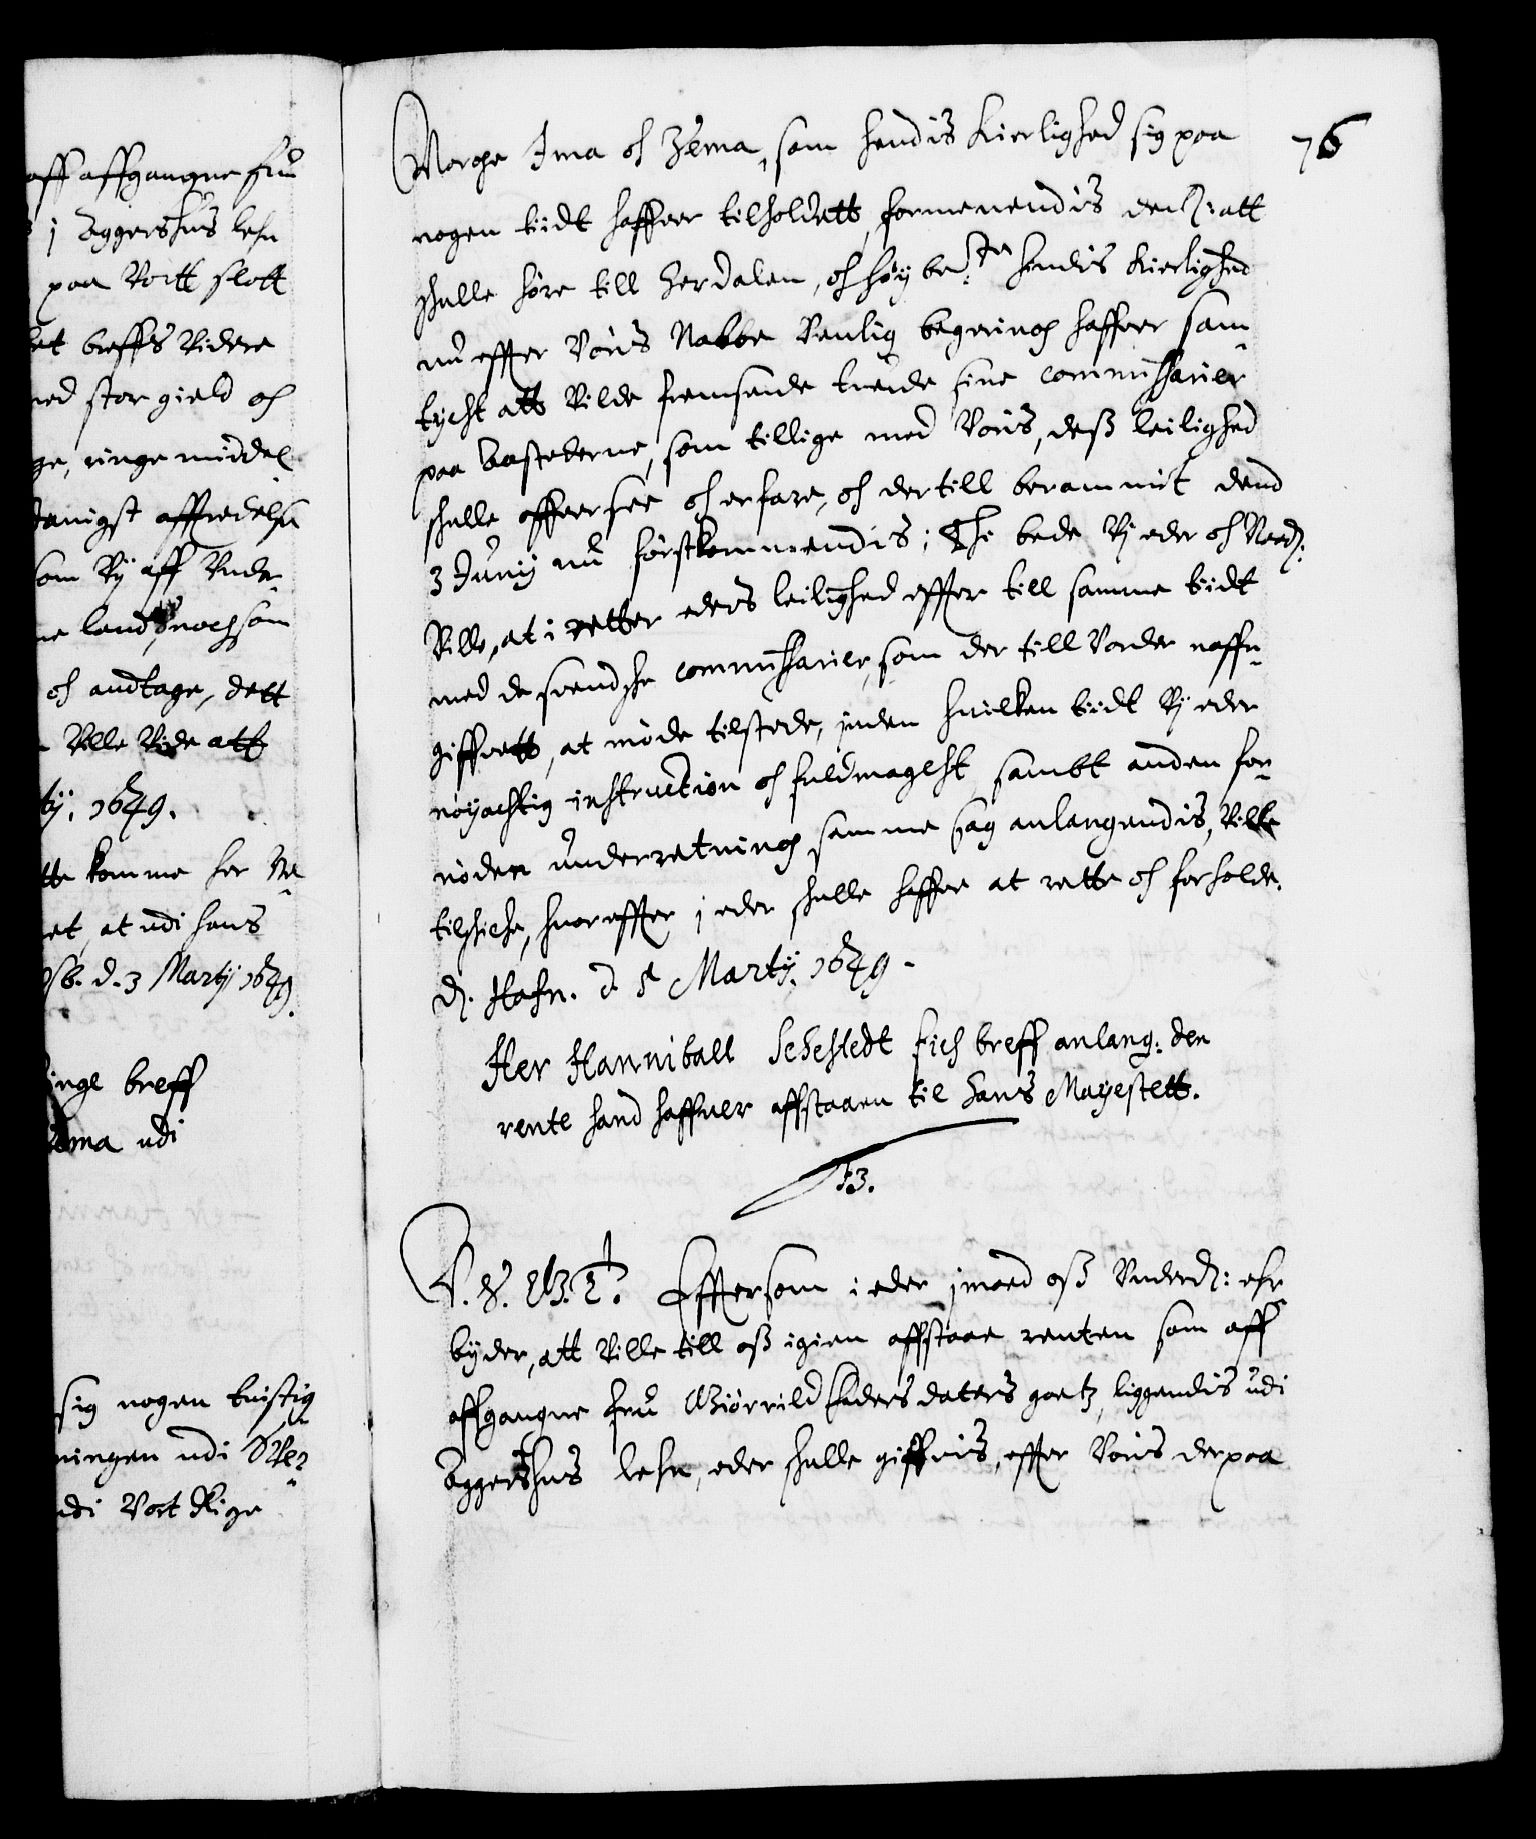 aff affgangne fru
j Aggershus lehn
paa Vortt slott
et breffs Videre
ed stor gield och
ge, ringe middel
danigst affredelse
som Vy aff Vnder
ne lands, noch som
och andtage, dett
Ville Vide att
tij: 1649.
tte komme her Ne
et, at udi hans
d. 3 Martij 1649.
inge breff
Idma udi
sig nogen tuistig
ningen udi
udi Vort Rige
76
Norge Idna och Zerna, som hendis Kierlighed sig paa
nogen tiidt haffver tilholdett, formenendis den: att
schulle høre till Herdalen, och høy be:te hendis Kierlighed
nu effter Voris Nabbe Venlig begering haffver sam
tycht att Vilde fremsende tvende sine commissarier
paa aastederne, som tillige med Voris, deß leilighed
schulle offversee och erfare, och dertill berammit dend
3 Junij nu førstkommendis; Thi bede Vj eder och Naad:
Ville, at i retter eders leilighed effter till samme tiidt
med de svendsche commissarier, som der till Vorder naffn
giffvett, at møde tilstede, inden huilken tiidt Vj eder
nøyachtig instruction och fuldmagcht sambt anden for
nøden underretning samme sag anlangendis, Ville
tilschiche, huoreffter j eder schulle haffve at rette och forholde.
Hafn. d. 5 Martij. 1649.
Her Hanniball Sehestedt fich breff anlang: den
rente hand haffver affstaaen til Hans Mayestett.
53.
C. 4. Effter som i eder imoed oß Vnderd: er
byder, att Ville till oß igien affstaae renten som aff
affgangne fru Giørrild Faders daters goetz, liggendis udi
Aggershus lehn, eder schulle giffvis, effter Voris derpaa